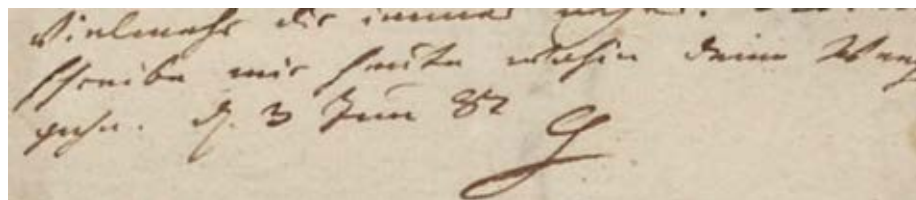 Vielmehr dir immer näher.
schreibe mir heute wohin deine Weeg
gehn. d. 3 Jun 82
G